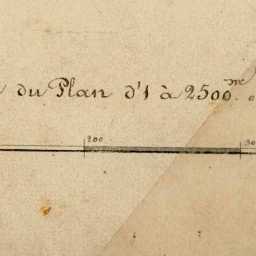 du Plan d'1 à 2500m.
200